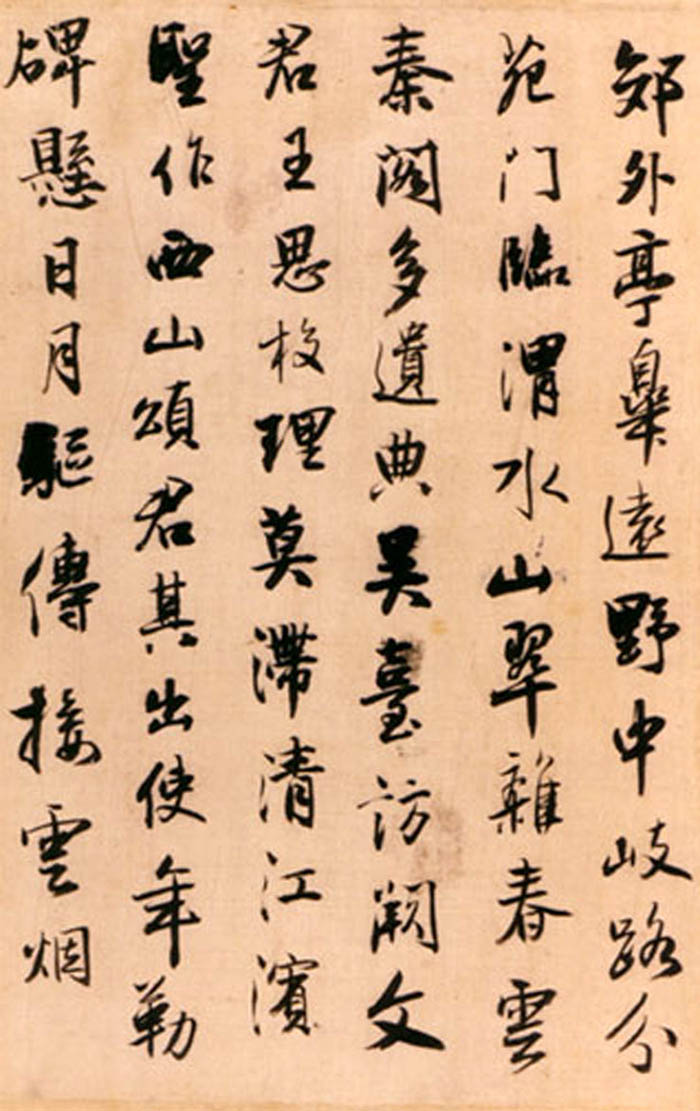 郊外亭皋遠野中岐路分
苑门臨渭水山翠雜春雲
秦閣多遺典吴臺訪闕文
君王思校理莫滯清江濱
聖作西山頌君其出使年勒
碑懸日月驅傳接雲烟